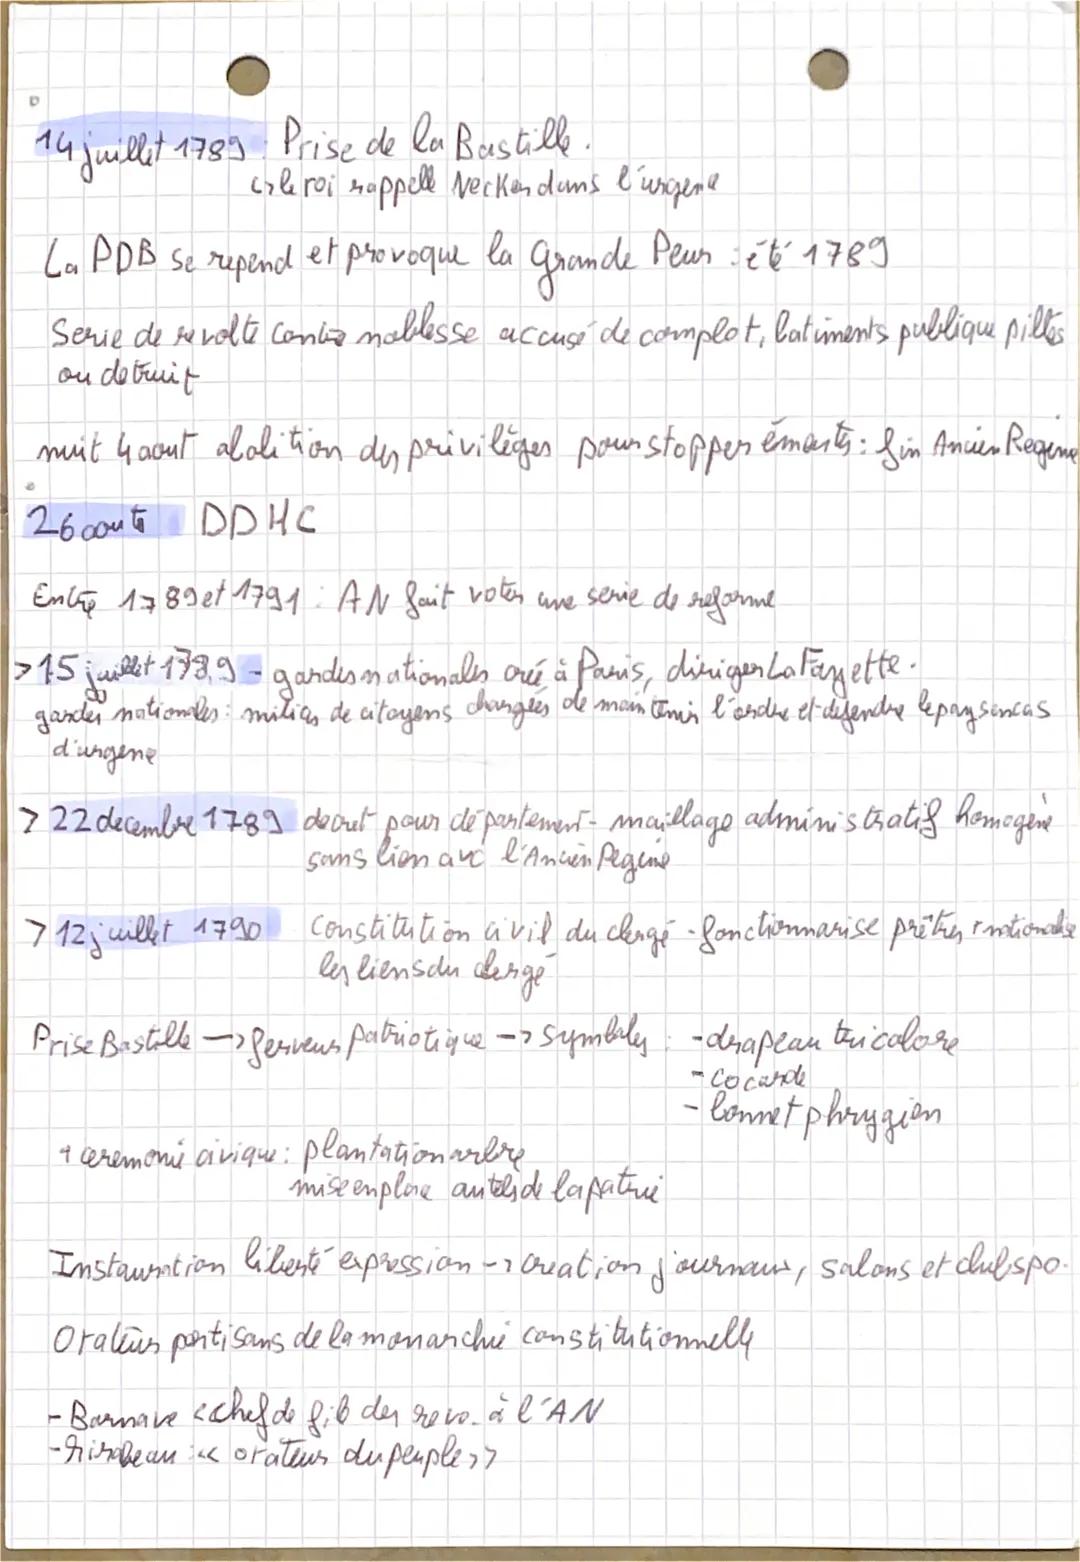 14 juillet 1789 : Prise de la Bastille.
↳ le roi rappelle Necker dans l'urgence
La PDB se repend et provoque la Grande Peur : été 1789
Serie de revolte contre noblesse accusé de complot, batiments publique pillés
ou detruit
nuit 4 aout abolition des privilèges pour stopper émeutes : fin Ancien Regime
26 aout DDHC
Entre 1789 et 1791 : AN fait voter une serie de reforme
> 15 juillet 1789 - gardes nationales créé à Paris, diriger La Fayette.
gardes nationales : milices de citoyens chargées de maintenir l'ordre et defendre le pays en cas
d'urgence
> 22 decembre 1789 decret pour département - maillage administratif homogène
sans lien avc l'Ancien Regime
> 12 juillet 1790 Constitution civil du clergé - fonctionnarise prêtres + nationalise
les liens du clergé
Prise Bastille -> ferveur patriotique -> symboles : - drapeau tricolore
- cocarde
- bonnet phrygien
+ ceremonie civique : plantation arbre
mise en place autels de la patrie
Instauration liberté expression -> creation journaux, salons et clubs po.
Orateurs partisans de la monarchie constitutionnelle
- Barnave « chef de fil des revo. à l'AN
- Mirabeau : « orateur du peuple »